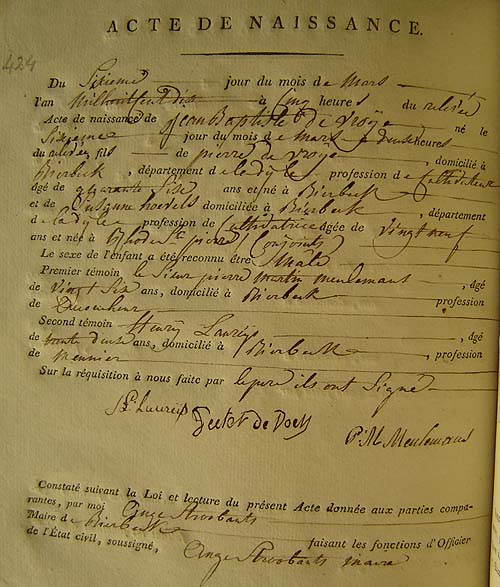 ACTE DE NAISSANCE.
424
Du Sixieme jour du mois de Mars
l'an Milhuitcent dix à Cinq heures du relevée
Acte de naissance de Jean Baptiste de Vroÿe né le
Sixieme jour du mois de mars à deux heures
du relevée, fils de pierre de Vroÿe, domicilié à
Bierbeek, département de la dÿle profession de Cultivateur
âgé de quarante Six ans et né à Bierbeek
et de domiciliée à Bierbeek, département
de la dÿle profession de Cultivatrice âgée de Vingt neuf
ans et née à Rhode Ste pierre Conjoints
Le sexe de l'enfant a été reconnu être Male
Premier témoin le Sieur pierre martin meulemans, âgé
de Vingt Six ans, domicilié à Bierbeek profession
de
Second témoin Henrÿ, âgé
de ans, domicilié à Bierbeek, profession
de Meunier
Sur la réquisition à nous faite par le pere ils ont Signé
P: M Meulemans
Constaté suivant la Loi et lecture du présent Acte donnée aux parties compa-
rantes, par moi Ange Stroobants
Maire de Bierbeek faisant les fonctions d'Officier
de l'État civil, soussigné,
Ange Stroobants maire